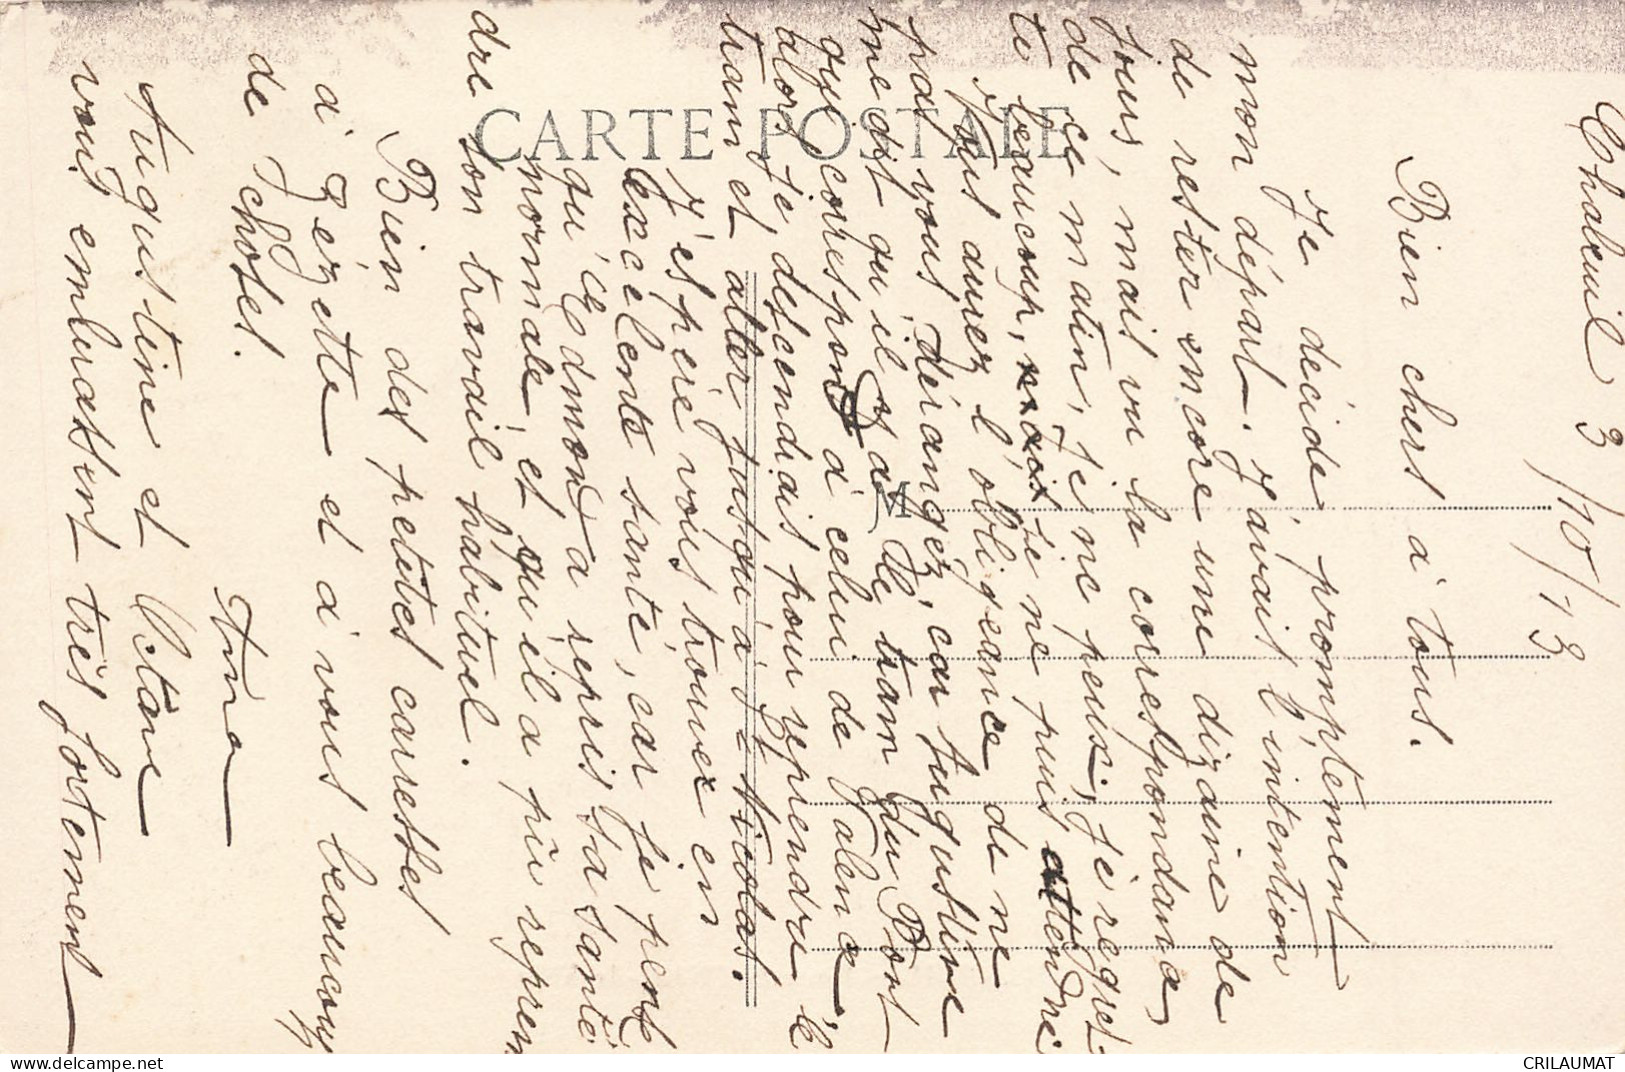 Chabeuil 3/10/13
Bien chers à tous.
Je décide promptement
mon départ. J'avait l'intention
de rester encore une dizaine de
jours, mais vu la correspondance
de ce matin, je ne peux, je regret-
te beaucoup, je ne puis attendre
Vous aurez l'obligeance de ne
pas vous dérangéz, car Augustine
me dit qu'il y a le tram du Pont
qui correspond à celui de Valence,
alors je descendrais pour reprendre le
tram et aller jusqu'à St Nicolas.
J'espère vous trouver en
excelente santé, car je pense
qu'Edmond a repris sa santé
normale, et qu'il a pû repren
dre son travail habituel.
Bien des petites caresses
à Zézette et à vous beaucoup
de
Ana
Augustine et Octave
vous embrassent très fortement
CARTE POSTALE
M
CRILAUMAT